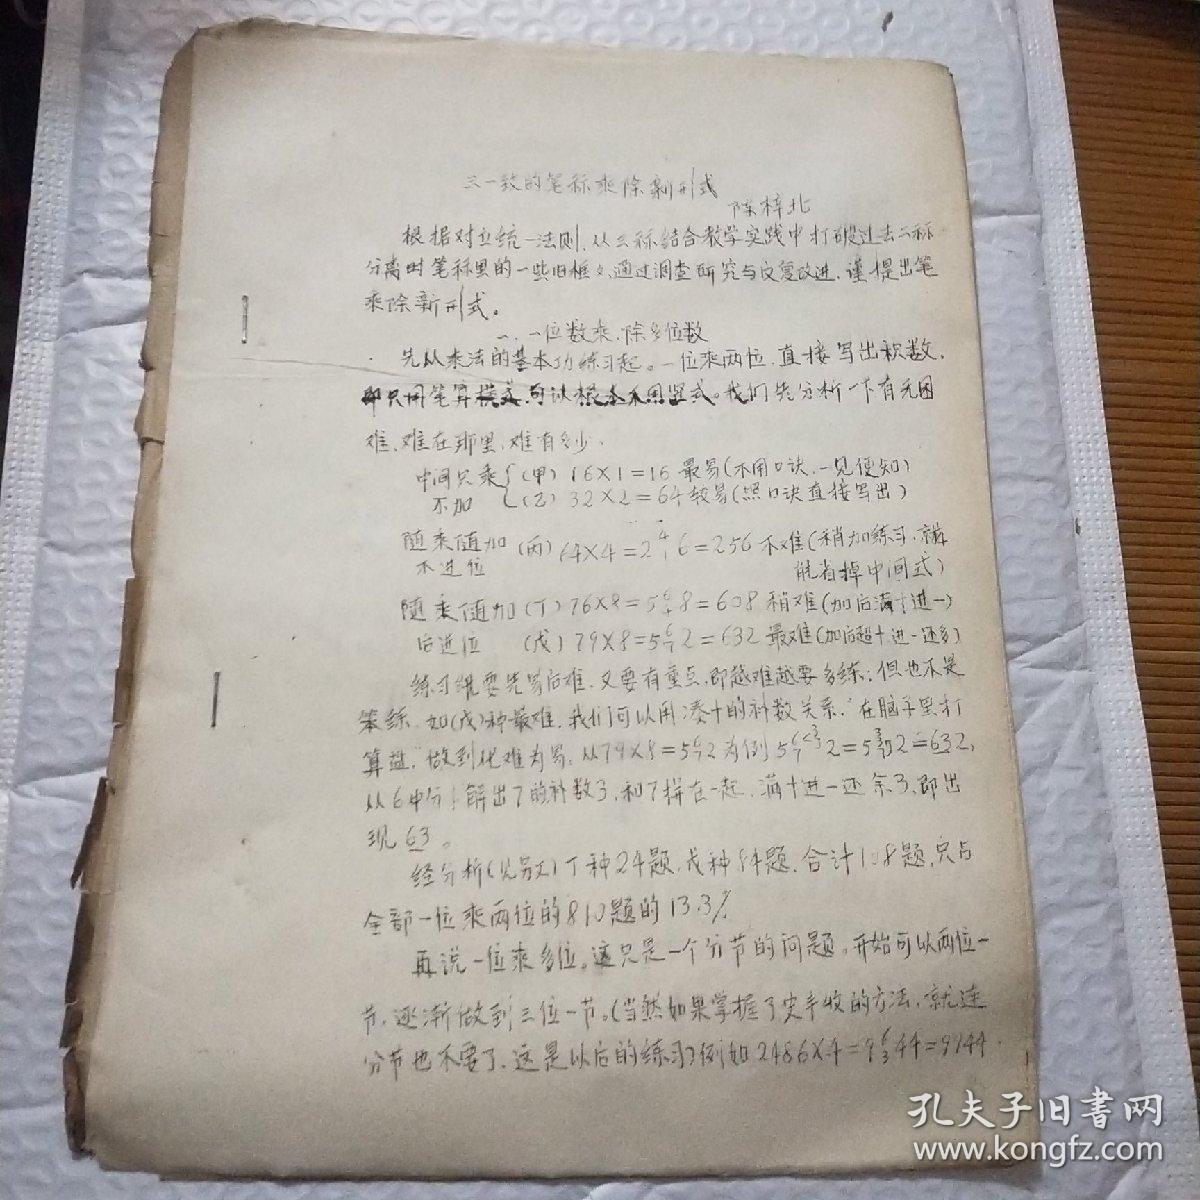 三一致的笔祘乘除新形式
陈梓北
根据对立统一法则，从三祘结合教学实践中打破过去三祘
分离时笔祘里的一些旧框，通过调查研究与反复改进，谨提出笔
乘除新形式。
一、一位数乘、除多位数
先从乘法的基本功练习起。一位乘两位，直接写出积数，
即只用笔算横式，可以根本不用竖式。我们先分析一下有无困
难、难在那里，难有多少。
中间只乘 (甲) 16×1=16 最易(不用口诀，一见便知)
不加 (乙) 32×2=64 较易(照口诀直接写出)
随乘随加 (丙) 64×4=2 4/1 6=256 不难(稍加练习，就
不进位 能省掉中间式)
随乘随加 (丁) 76×8=5 6/4 8=608 稍难(加后满十进一)
后进位 (戊) 79×8=5 6/7 2=632 最难(加后超十，进一还多)
练习既要先易后难，又要有重点，即越难越要多练；但也不是
笨练，如(戊)种最难，我们可以用凑十的补数关系，“在脑子里打
算盘”做到化难为易。从79×8=5 6/7 2为例 5 6/7 2=5 2=632，
从6中分解出7的补数3，和7拼在一起，满十进一还余3，即出
现63。
经分析(见另文)丁种24题，戊种84题，合计108题，只占
全部一位乘两位的810题的13.3%
再说一位乘多位。这只是一个分节的问题。开始可以两位一
节，逐渐做到三位一节。(当然如果掌握了史丰收的方法，就连
分节也不要了，这是以后的练习)例如2486×4=9 6/3 44=9944.
孔夫子旧书网
www.kongfz.com